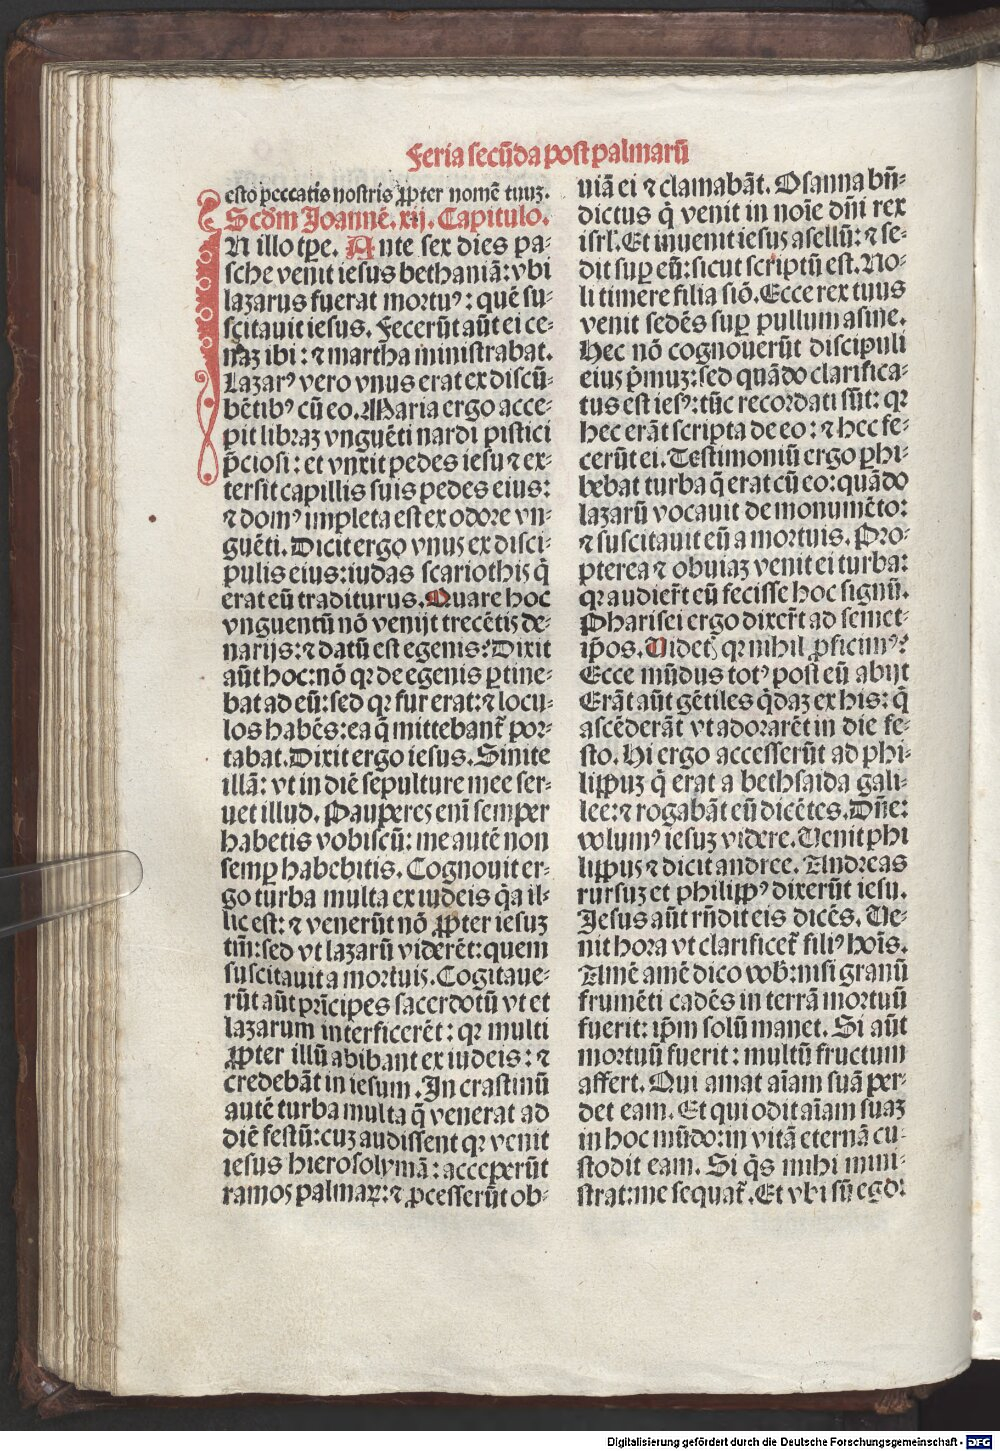 Feria secūda post palmarū
esto pcccatis nostris ꝓpter nomē tuuꝫ.
Scdm Joannē. xij. Capitulo.
IN illo tꝑe. Ante sex dies pa-
sche venit iesus bethaniā: vbi
lazarus fuerat mortuꝰ: quē su-
scitauit iesus. Fecerūt aūt ei ce-
naꝫ ibi: ⁊ martha ministrabat.
Lazarꝰ vero vnus erat ex discū-
bētibꝰ cū eo. Maria ergo acce-
pit libraꝫ vnguēti nardi pistici
p̄ciosi: et vnxit pedes iesu ⁊ ex-
tersit capillis suis pedes eius:
⁊ domꝰ impleta est ex odore vn-
guēti. Dicit ergo vnus ex disci-
pulis eius: iudas scariothis q̄
erat eū traditurus. Quare hoc
vnguentū nō venijt trecētis de-
narijs: ⁊ datū est egenis? Dixit
aūt hoc: nō qꝛ de egenis ꝑtine-
bat ad eū: sed qꝛ fur erat: ⁊ locu-
los habēs: ea q̄ mittebant̄ por-
tabat. Dixit ergo iesus. Sinite
illā: vt in diē sepulture mee ser-
uet illud. Pauperes enī semper
habetis vobiscū: me autē non
semꝑ habebitis. Cognouit er-
go turba multa ex iudeis q̄a il-
lic est: ⁊ venerūt nō ꝓpter iesuꝫ
tm̄: sed vt lazarū viderēt: quem
suscitauit a mortuis. Cogitaue-
rūt aūt prīcipes sacerdotū vt et
lazarum interficerēt: qꝛ multi
ꝓpter illū abibant ex iudeis: ⁊
credebāt in iesum. In crastinū
autē turba multa q̄ venerat ad
diē festū: cuꝫ audissent qꝛ venit
iesus hierosolymā: acceperūt
ramos palmaꝝ: ⁊ ꝓcesserūt ob-
uiā ei ⁊ clamabāt. Osanna bn̄-
dictus q̄ venit in noīe dn̄i rex
isrl. Et inuenit iesus asellū: ⁊ se-
dit suꝑ eū: sicut scriptū est. No-
li timere filia siō. Ecce rex tuus
venit sedēs suꝑ pullum asine.
Hec nō cognouerūt discipuli
eius p̄muꝫ: sed quādo clarifica-
tus est iesꝰ: tūc recordati sūt: qꝛ
hec erāt scripta de eo: ⁊ hec fe-
cerūt ei. Testimoniū ergo ꝑhi-
bebat turba q̄ erat cū eo: quādo
lazarū vocauit de monumēto:
⁊ suscitauit eū a mortuis. Pro-
pterea ⁊ obuiaꝫ venit ei turba:
qꝛ audier̄t eū fecisse hoc signū.
Pharisei ergo dixer̄t ad semet-
ip̄os. Videtꝭ qꝛ nihil ꝓficimꝰ?
Ecce mūdus totꝰ post eū abijt
Erāt aūt gētiles q̄daꝫ ex his: q̄
ascēderāt vt adorarēt in die fe-
sto. Hi ergo accesserūt ad phi-
lippuꝫ q̄ erat a bethsaida gali-
lee: ⁊ rogabāt eū dicētes. Dn̄e:
volumꝰ iesuꝫ videre. Venit phi
lippus ⁊ dicit andree. Andreas
rursuꝫ et philippꝰ dixerūt iesu.
Jesus aūt rn̄dit eis dicēs. Ve-
nit hora vt clarificet̄ filiꝰ hoīs.
Amē amē dico vob̄: nisi granū
frumēti cadēs in terrā mortuū
fuerit: ip̄m solū manet. Si aūt
mortuū fuerit: multū fructum
affert. Qui amat aīam suā per-
det eam. Et qui odit aīam suaꝫ
in hoc mūdo: in vitā eternā cu-
stodit eam. Si q̄s mihi mini-
strat: me sequat̄. Et vbi sū ego:
Digitalisierung gefördert durch die Deutsche Forschungsgemeinschaft - DFG